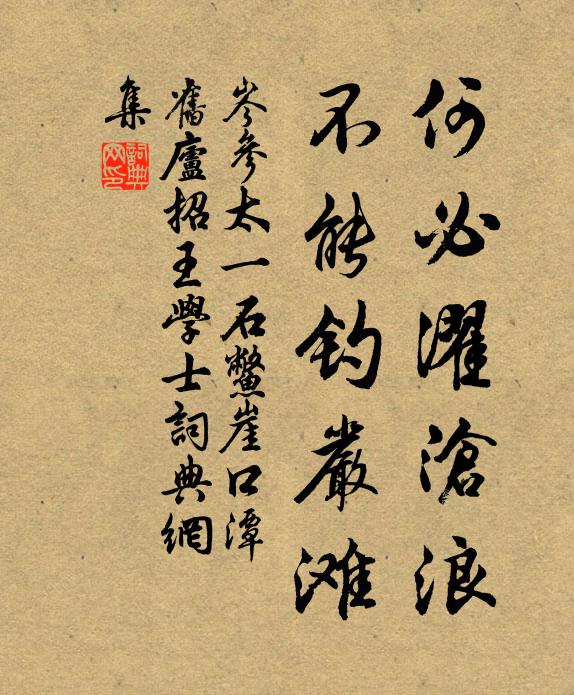 何必濯滄浪
不能釣嚴滩
岑參太一石鱉崖口潭
舊廬招王學士詞典網
集
詞典網印